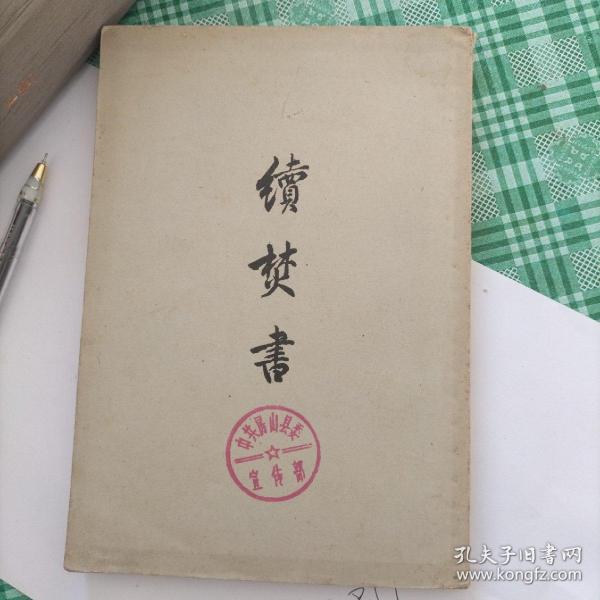 續焚書
中共房山县委
宣传部
孔夫子旧書网
www.kongfz.com